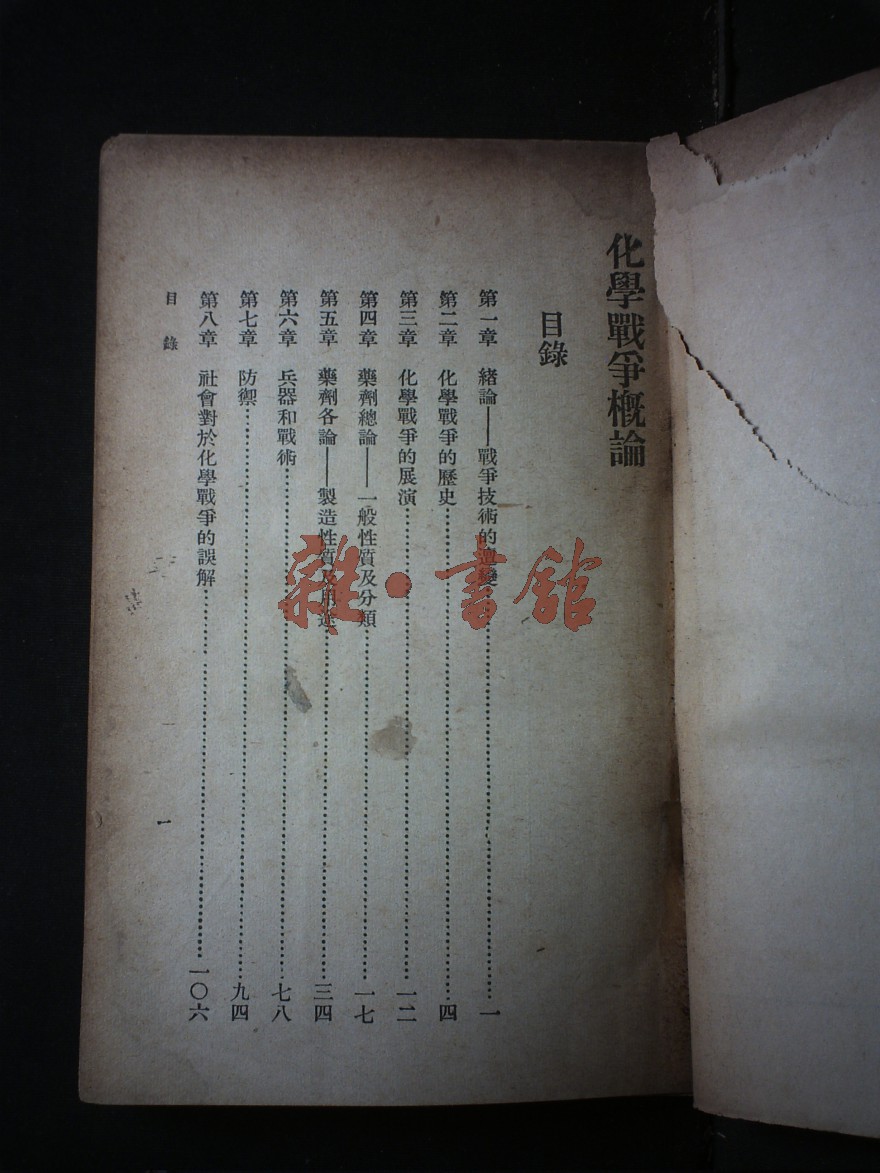 化學戰爭槪論
目錄
第一章　緒論——戰爭技術的遞變……一
第二章　化學戰爭的歷史……四
第三章　化學戰爭的展演……一二
第四章　藥劑總論——一般性質及分類……一七
第五章　藥劑各論——製造性質及用途……三四
第六章　兵器和戰術……七八
第七章　防禦……九四
第八章　社會對於化學戰爭的誤解……一〇六
目錄　一
雜·書館